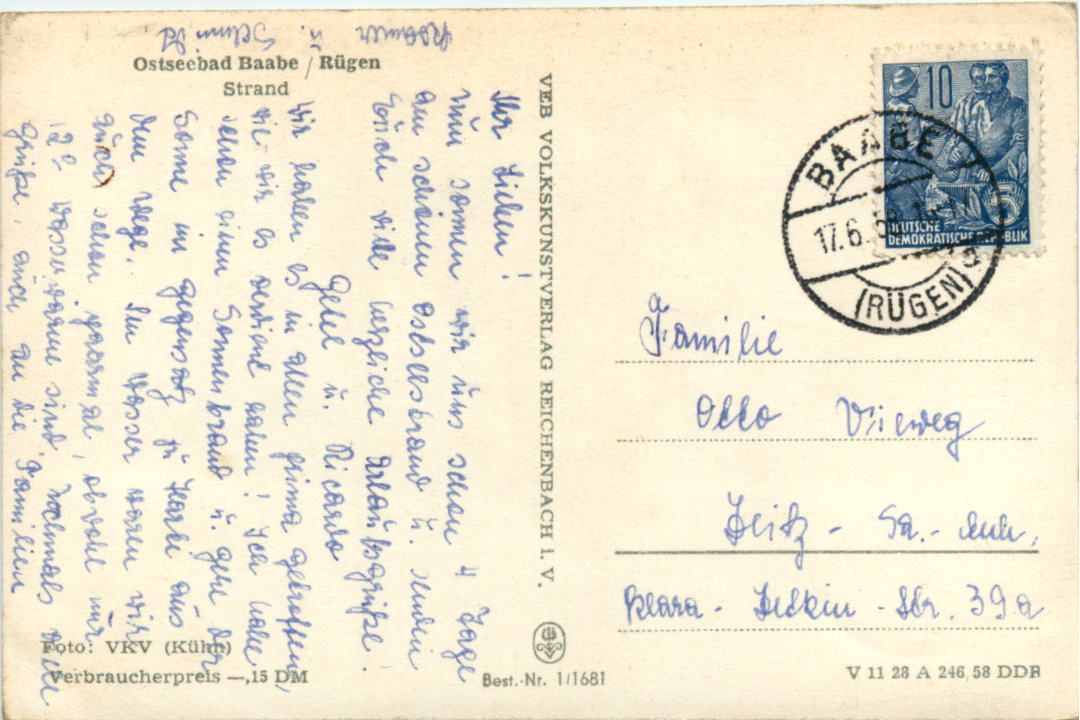 Ostseebad Baabe / Rügen
Strand
Ihr Lieben!
Nun sonnen wir uns schon 4 Tage
am schönen Ostseestrand u. senden
Euch viele herzliche Urlaubsgrüße!
u. Ricardo
Wir haben es in allem prima getroffen,
wie wir es verdient haben! Ich habe
schon einen Sonnenbrand u. gehe der
Sonne im Gegensatz zu aus
dem Wege. Im Wasser waren wir
auch schon obwohl nur
12° Wasserwärme sind. Nochmals viele
Grüße, auch an die Familien
u. Schmidt.
Foto: VKV (Kühn)
Verbraucherpreis —,15 DM
VEB VOLKSKUNSTVERLAG REICHENBACH i. V.
Best.-Nr. 1/1681
10
DEUTSCHE
DEMOKRATISCHE REPUBLIK
BAABE
17.6.58
(RÜGEN)
Familie
Otto Vieweg
Zeitz - Sa.- Anh.
Klara - Zetkin - Str. 39a
V 11 28 A 246 58 DDR